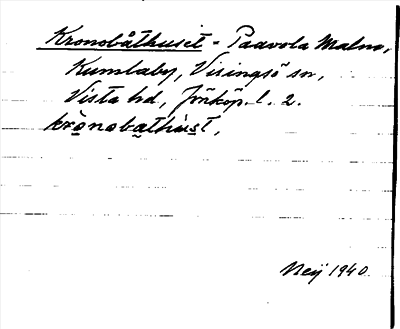 Kronobåthuset - Paavola Malm,
Kumlaby, Visingsö sn,
Vista hd, Jönköp. l. 2.
krònobathùst,
Neij 1940.